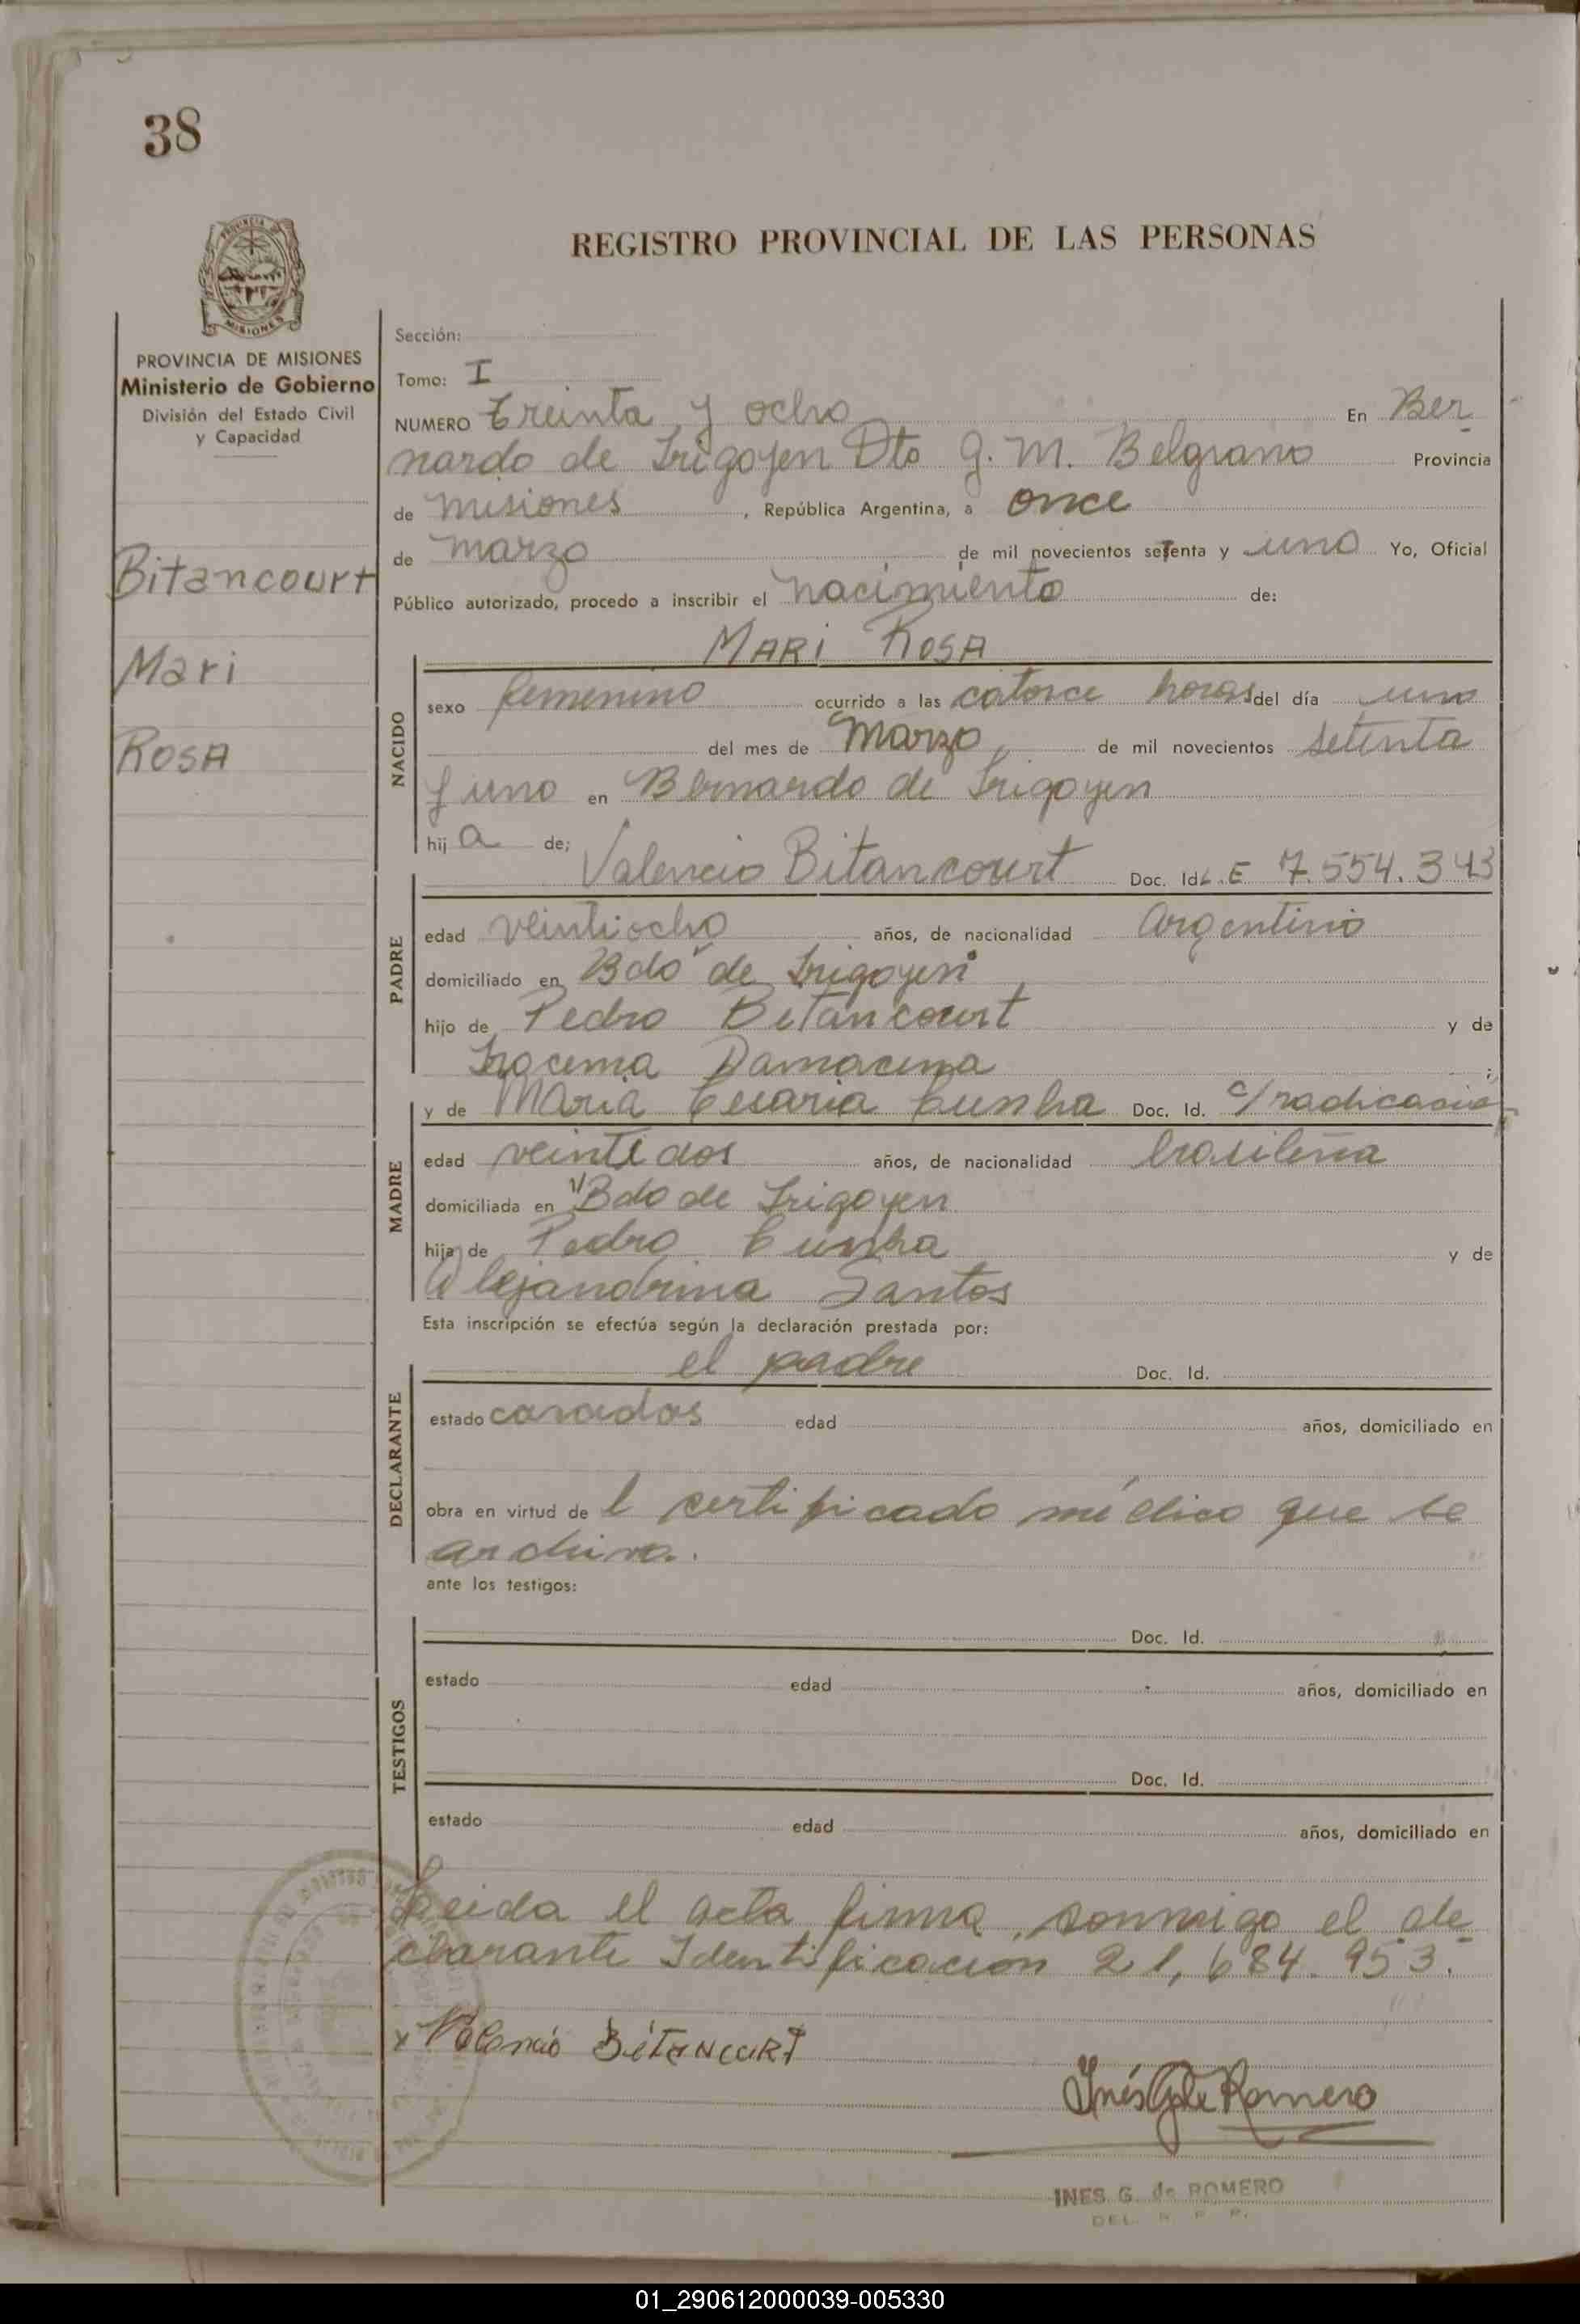 38
REGISTRO PROVINCIAL DE LAS PERSONAS
PROVINCIA DE MISIONES
Ministerio de Gobierno
División del Estado Civil
y Capacidad
Bitancourt
Mari
Rosa
Sección:
Tomo: I
NUMERO Treinta y ocho En Ber
nardo de Irigoyen Dto G. M. Belgrano Provincia
de Misiones, República Argentina, a once
de marzo de mil novecientos setenta y uno Yo, Oficial
Público autorizado, procedo a inscribir el nacimiento de:
MARI ROSA
NACIDO
sexo femenino ocurrido a las catorce horas del día uno
del mes de Marzo, de mil novecientos setenta
y uno en Bernardo de Irigoyen
hija de;
PADRE
Valencio Bitancourt Doc. Id L.E 7.554.343
edad veintiocho años, de nacionalidad argentino
domiciliado en Bdo de Irigoyen
hijo de Pedro Betancourt y de
Iracema Damacena;
MADRE
y de Maria Cesaria Cunha Doc. Id. c/radicación
edad veintidos años, de nacionalidad brasileña
domiciliada en Bdo de Irigoyen
hija de Pedro Cunha y de
Alejandrina Santos
Esta inscripción se efectúa según la declaración prestada por:
DECLARANTE
el padre Doc. Id.
estado casados edad años, domiciliado en
obra en virtud de l certificado médico que se
archiva.
ante los testigos:
TESTIGOS
Doc. Id.
estado edad años, domiciliado en
Doc. Id.
estado edad años, domiciliado en
Leida el acta firma conmigo el de
clarante Identificacion 21,684.953.
x Valencio BETANCURT
Inés G de Romero
INES G. de ROMERO
DEL. R. P. P.
01_290612000039-005330